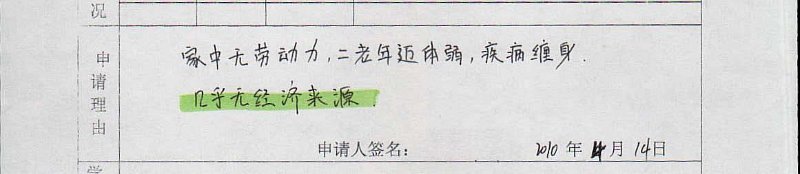 况
申请理由
家中无劳动力，二老年迈体弱，疾病缠身.
几乎无经济来源.
申请人签名： 2010 年 4 月 14 日